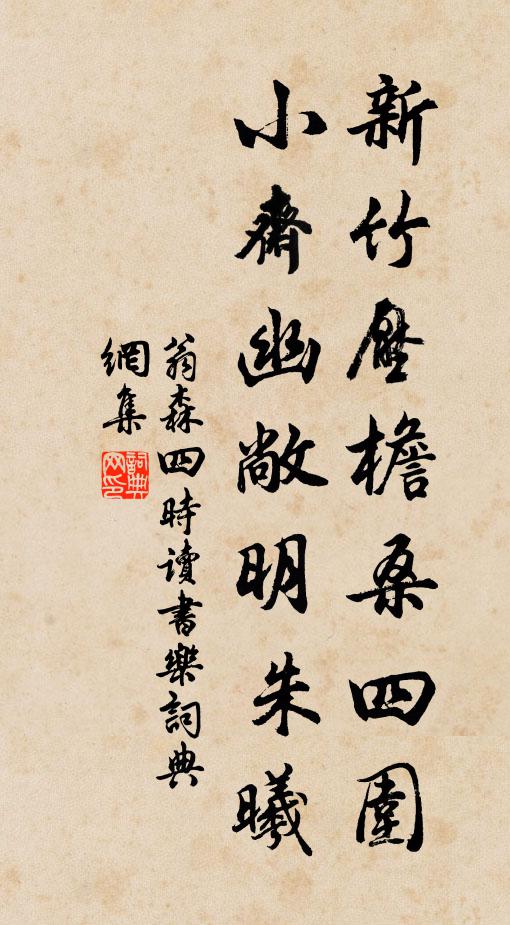 新竹壓檐桑四圍
小齋幽敞明朱曦
翁森四時讀書樂詞典
網集
詞典
网印